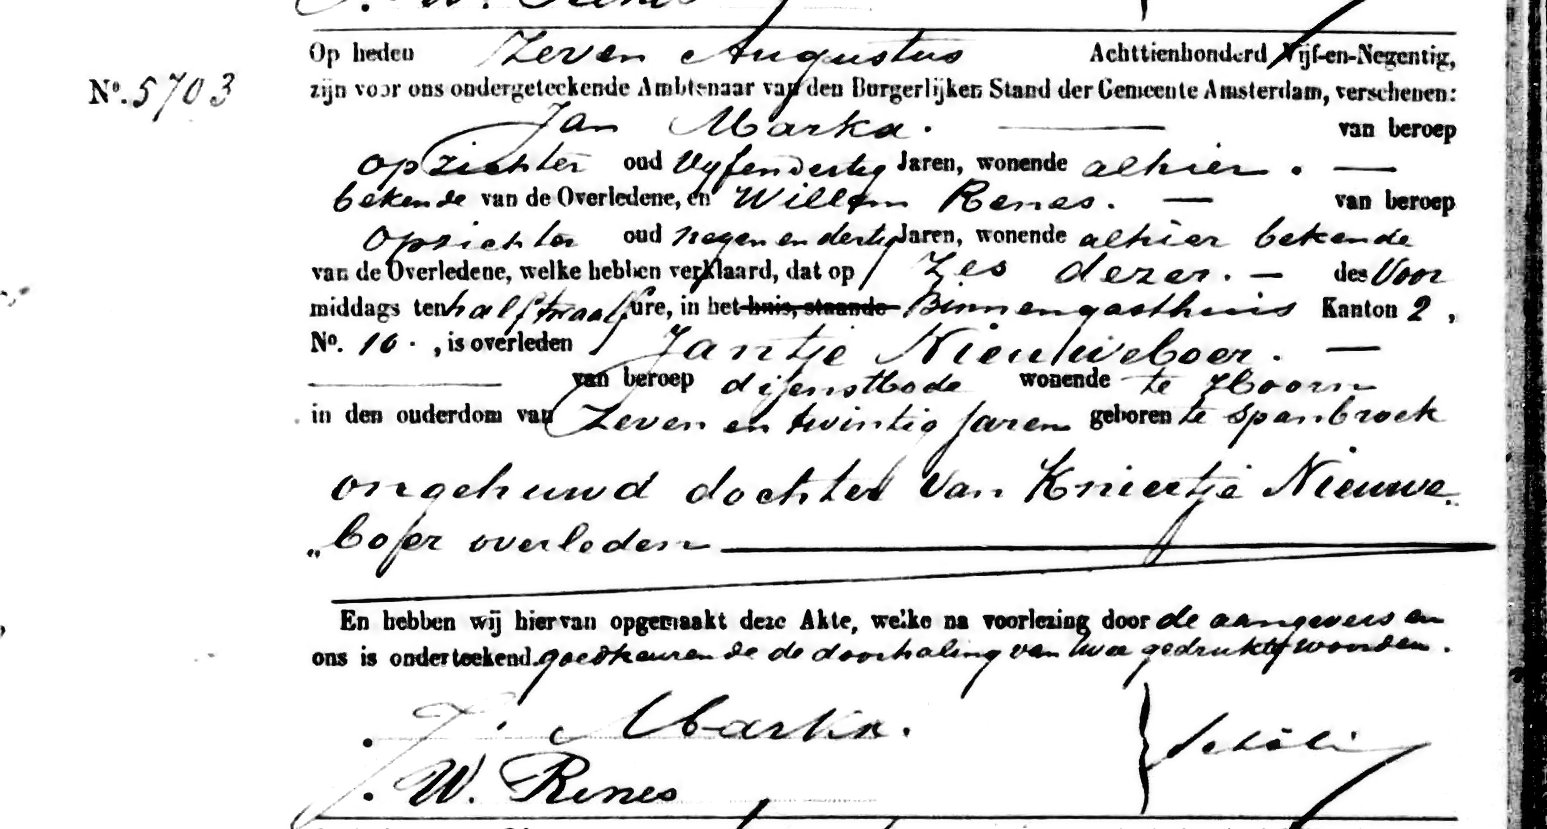 W. Renes
Op heden Zeven Augustus Achttienhonderd Vijf-en-Negentig,
No. 5703
zijn voor ons ondergeteekende Ambtenaar van den Burgerlijken Stand der Gemeente Amsterdam, verschenen:
Jan Marka. — van beroep
opzichter oud Vyfendertig Jaren, wonende alhier. —
bekende van de Overledene, en Willem Renes. — van beroep
Opzichter oud negen en dertig Jaren, wonende alhier bekende
van de Overledene, welke hebben verklaard, dat op Zes dezer. — des Voor
middags ten half twaalf ure, in het huis, staande Binnengasthuis Kanton 2,
No. 10., is overleden Jantje Nieuweboer. —
— van beroep dienstbode wonende te Hoorn
in den ouderdom van Zeven en twintig Jaren geboren te Spanbroek
ongehuwd dochter van Kniertje Nieuwe-
„boer overleden —
En hebben wij hiervan opgemaakt deze Akte, welke na voorlezing door de aangevers en
ons is onderteekend. goedkeurende de doorhaling van twee gedrukte woorden.
J. Marka.
W. Renes